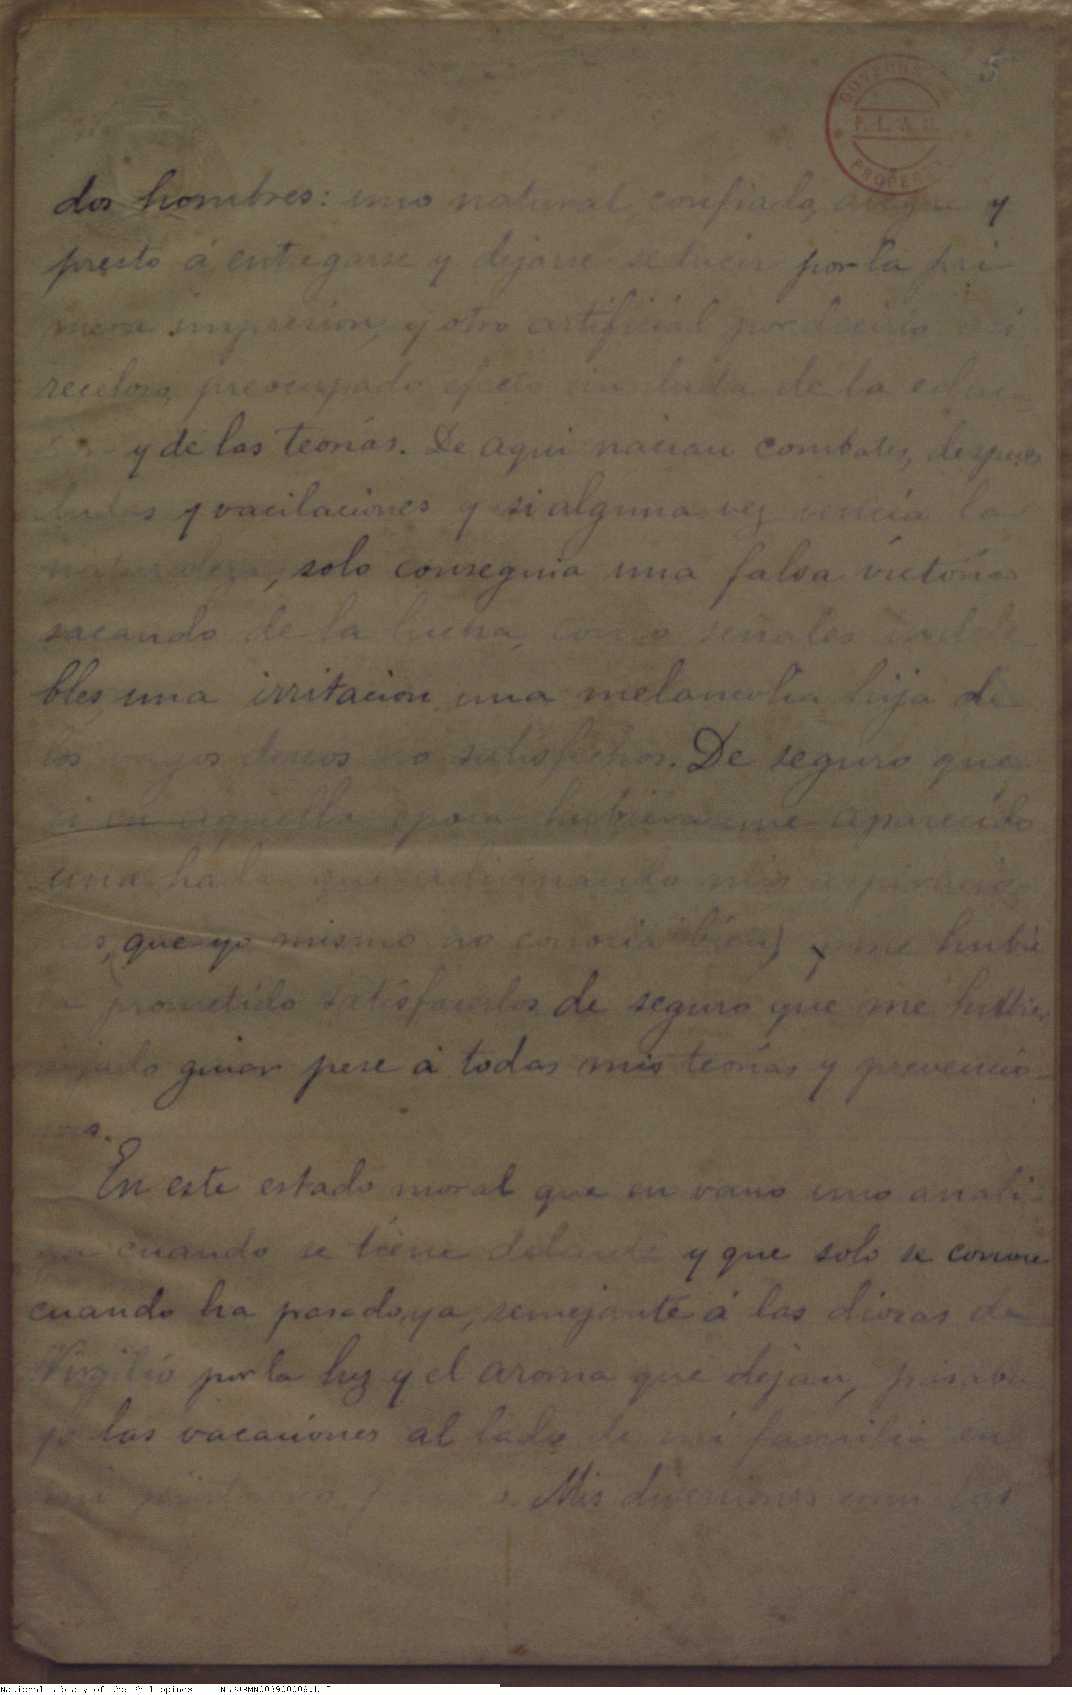 5
GOVERN
P. L. & M.
PROPER
dos hombres: uno natural, confiado, alegre y
presto á entregarse y dejarse seducir por la pri-
mera impresion, y otro artificial por decirlo así
receloso, preocupado efecto sin duda de la educa-
y de las teorías. De aqui nacian combates, despues
dudas y vacilaciones y si alguna vez vencía la
naturaleza, solo conseguia una falsa victoria
sacando de la lucha, como señales indele-
bles, una irritacion, una melancolia hija de
los vagos deseos no satisfechos. De seguro que,
si en aquella epoca hubierase me aparecido
una hada que adivinando mis aspiracio-
nes, que yo mismo no conocia bien, me hubie
ra prometido satisfacerlos de seguro que me hubier
guiar pese á todas mis teorías y prevencio-
nes.
En este estado moral que en vano uno anali-
za cuando se tiene delante y que solo se conoce
cuando ha pasado ya, semejante á las diosas de
Virgilio por la luz y el aroma que dejan, pasaba
yo las vacaciones al lado de mi familia en
mi Mis diversiones eran las
National Library of the Philippines